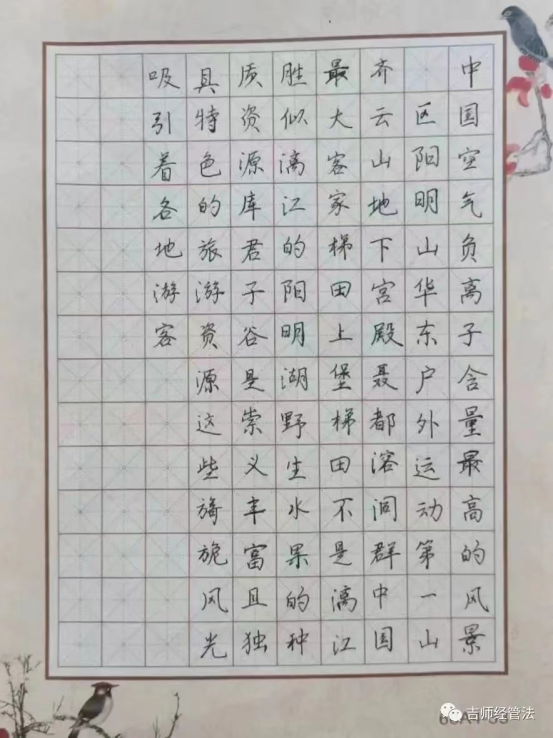 中国空气负离子含量最高的风景
区阳明山华东户外运动第一山
齐云山地下宫殿聂都溶洞群中国
最大客家梯田上堡梯田不是漓江
胜似漓江的阳明湖野生水果的种
质资源库君子谷是崇义丰富且独
具特色的旅游资源这些旖旎风光
吸引着各地游客
吉师经管法